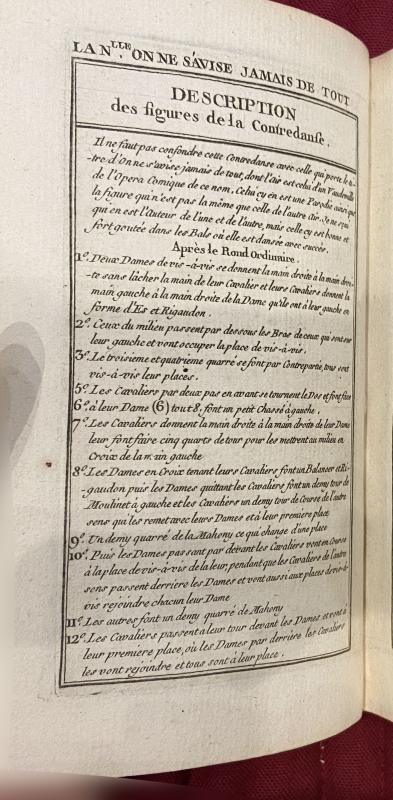 LA N.LLE ON NE S'AVISE JAMAIS DE TOUT
DESCRIPTION
des figures de la Contredanse.
Il ne faut pas confondre cette Contredanse avec celle qui porte le ti-
-tre d'On ne s'avise jamais de tout, dont l'Air est celui d'un Vaudeville
de l'Opera Comique de ce nom. Celui cy en est une Parodie ainsi que
la figure qui n'est pas la même que celle de l'autre Air. Je ne sçai
qui en est l'Auteur de l'une et de l'autre, mais celle cy est bonne et
fort goutée dans les Bals où elle est dansée avec succès.
Après le Rond Ordinaire.
1.º Deux Dames de vis-à-vis se donnent la main droite à la main droi-
-te sans lâcher la main de leur Cavalier et leurs Cavaliers donnent la
main gauche à la main droite de la Dame qu'ils ont à leur gauche en
forme d'Es et Rigaudon.
2.º Ceux du milieu passent par dessous les Bras de ceux qui sont sur
leur gauche et vont occuper la place de vis-à-vis.
3.º Le troisieme et quatrieme quarré se font par Contrepartie, tous sont
vis-à-vis leur places.
5.º Les Cavaliers par deux pas en avant se tournent le Dos et font face
6.º à leur Dame (6) tout 8, font un petit Chassé à gauche.
7.º Les Cavaliers donnent la main droite à la main droite de leur Dame
leur font faire cinq quarts de tour pour les mettront au milieu en
Croix de la main gauche
8.º Les Dames en Croix tenant leurs Cavaliers, font un Balancer et Ri-
gaudon puis les Dames quittant les Cavaliers, font un demy tour de
Moulinet à gauche et les Cavaliers un demy tour de Course de l'autre
sens qui les remet avec leurs Dames et à leur premiere place
9.º Un demy quarré de la Mahony ce qui change d'une place
10.º Puis les Dames passant par devant les Cavaliers vont en Course
à la place de vis-à-vis de la leur, pendant que les Cavaliers de l'autre
sens passent derriere les Dames et vont aussi aux places de vis-à-
vis rejoindre chacun leur Dame
11.º Les autres font un demy quarré de Mahony
12.º Les Cavaliers passent a leur tour devant les Dames et vont à
leur premiere place, où les Dames par derriere les Cavaliers
les vont rejoindre et tous sont à leur place.